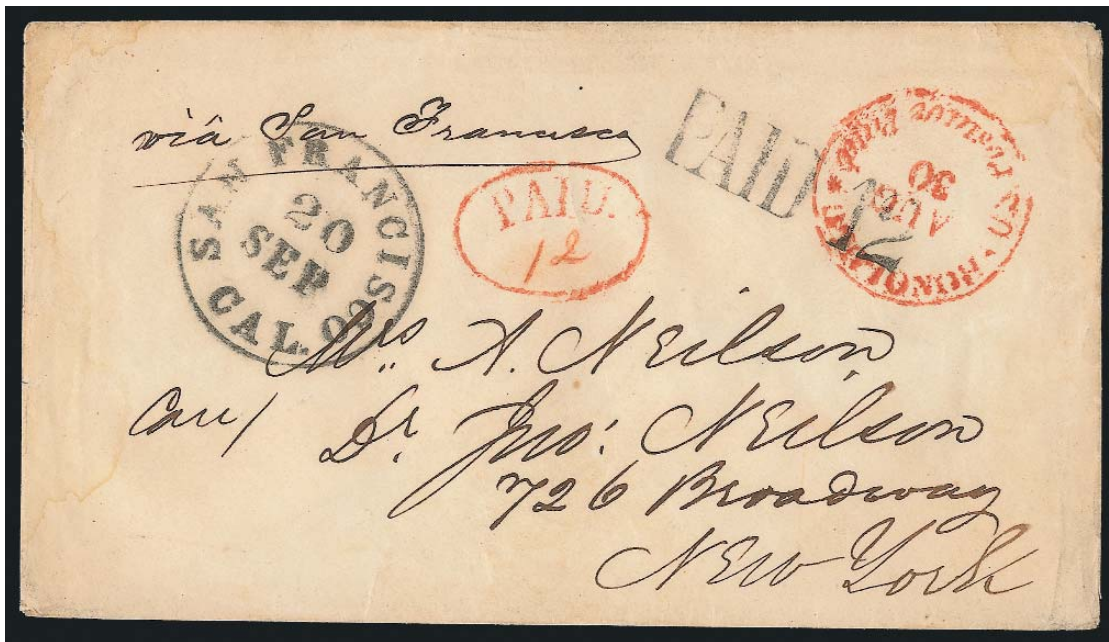 via San Francisco
SAN FRANCISCO
20
SEP
CAL.
PAID.
12
PAID
12
HONOLULU · U.S. Postage Paid ·
AUG
30
Mrs. A. Neilson
Care/
Dr. Jno: Neilson
726 Broadway
New York